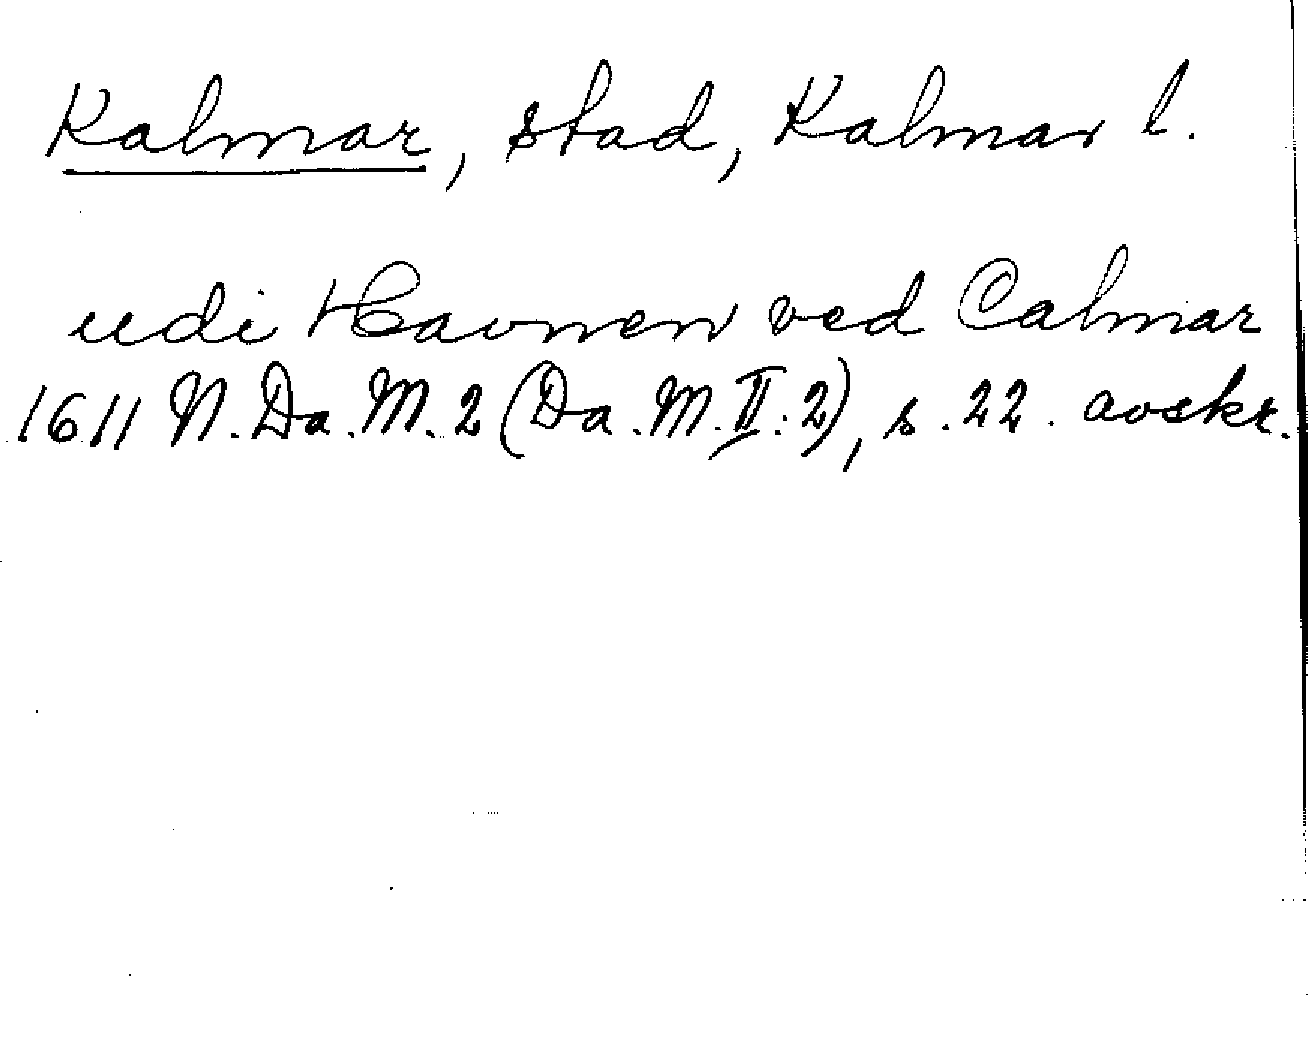 Kalmar, stad, Kalmar l.
udi Havnen ved Calmar
1611 N. Da. M. 2 (Da. M. II: 2), s. 22. avskr.